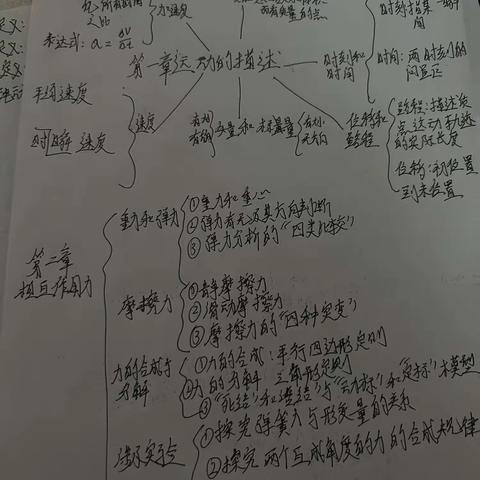 加速度
表达式: a = ΔV/Δt
第一章运动的描述
时刻和时间
时间: 两时刻的间隔
平均速度
瞬时速度
速度
矢量和标量
有大小无方向
位移和路程
路程: 描述质点运动轨迹的实际长度
位移: 初位置到末位置
第二章
相互作用力
重力和弹力
①重力和重心
②弹力有无及其方向判断
③弹力分析的“四类比较”
摩擦力
①静摩擦力
②滑动摩擦力
③摩擦力的“四种突变”
力的合成与分解
①力的合成: 平行四边形定则
②力的分解 三角形定则
③“死结”和“活结”与“动杆”和“定杆”模型
实验
①探究弹簧弹力与形变量的关系
②探究两个互成角度的力的合成规律